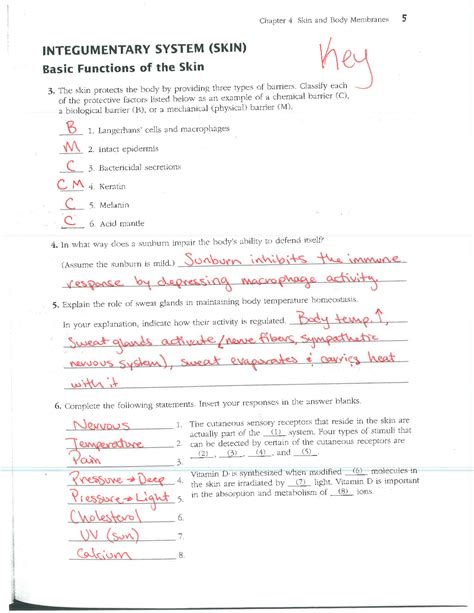 Chapter 4 Skin and Body Membranes 5
INTEGUMENTARY SYSTEM (SKIN)
Key
Basic Functions of the Skin
3. The skin protects the body by providing three types of barriers. Classify each
of the protective factors listed below as an example of a chemical barrier (C),
a biological barrier (B), or a mechanical (physical) barrier (M).
B 1. Langerhans' cells and macrophages
M 2. Intact epidermis
C 3. Bactericidal secretions
C M 4. Keratin
C 5. Melanin
C 6. Acid mantle
4. In what way does a sunburn impair the body's ability to defend itself?
(Assume the sunburn is mild.) Sunburn inhibits the immune
response by depressing macrophage activity.
5. Explain the role of sweat glands in maintaining body temperature homeostasis.
In your explanation, indicate how their activity is regulated. Body temp. ↑,
Sweat glands activate (nerve fibers, sympathetic
nervous system), sweat evaporates & carries heat
with it
6. Complete the following statements. Insert your responses in the answer blanks.
Nervous 1. The cutaneous sensory receptors that reside in the skin are
actually part of the (1) system. Four types of stimuli that
Temperature 2. can be detected by certain of the cutaneous receptors are
(2), (3), (4), and (5).
Pain 3.
Pressure → Deep 4. Vitamin D is synthesized when modified (6) molecules in
the skin are irradiated by (7) light. Vitamin D is important
Pressure → Light 5. in the absorption and metabolism of (8) ions.
Cholesterol 6.
UV (sun) 7.
Calcium 8.